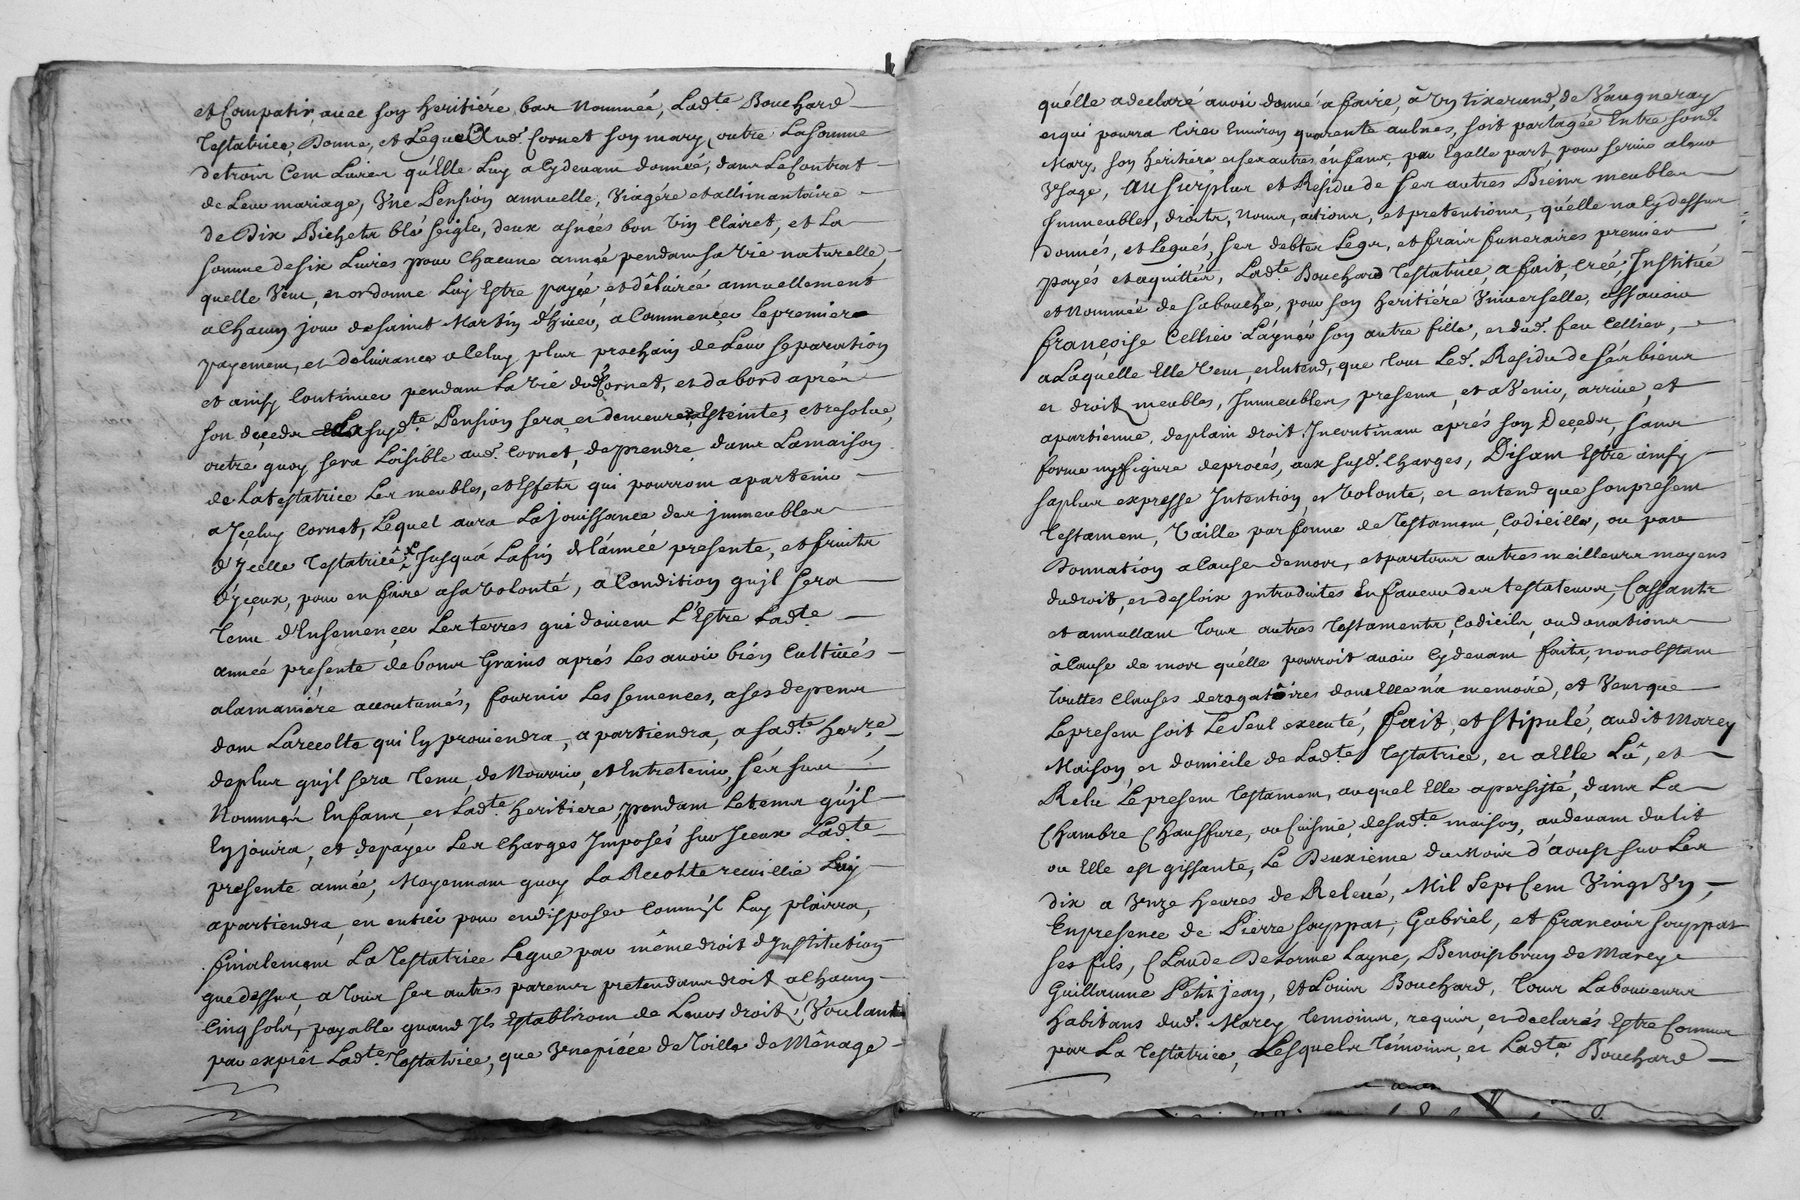 et Compatir, avec son heritiére bar Nommée, Ladte Bouchard
Testatrice, Donne, et Legue Aud. Cornet son mary, outre La somme
de trois Cent Livres qu'Elle Luy a Cydevant donnée, dans Le Contrat
de Leur mariage, Vne Pension annuelle, Viagére et allimantaire
de Dix Bichets blé seigle, deux asnées bon Vin Clairet, et La
somme de six Livres pour Chacune année pendant sa Vie naturelle,
quelle Veut, et ordonne Luy Estre payée, et délivrée annuellement
a Chacun jour de saint Martin d'hiver, a Commencer le premier
payement, et delivrance a Celuy plus prochain de Leur separation
et ainsy Continuer pendant La Vie dud. Cornet, et dabord aprés
son deçeds La susdte. Pension sera, et demeurera Esteinte, et resolue,
outre quoy sera Loisible aud. Cornet, de prendre dans La maison
de La testatrice Les meubles, et Effets qui pourront apartenir
a Iceluy Cornet, Lequel aura La jouissance des jmmeubles
d'Ycelle Testatrice Jusqua La fin de L'année presente, et fruits
d'jceux, pour en faire a sa Volonté, a Condition qujl sera
Tenu d'Ensemencer Les terres qui doivent L'Estre Ladte.
année presente de bons Grains aprés Les avoir bién Cultivés
a la maniére accoutumés, fournir Les semences, a ses depens
dont La recolte qui En proviendra, apartiendra, a sadte. herre,
de plus qujl sera Tenu de Nourrir, et Entretenir, sés sus
Nommés Enfans, et Ladte. heritiere, pendant Le tems qujl
En jouira, et depayer Les Charges Imposés sur Jceux Ladte.
presente année, Moyennant quoy La Recolte recuillie Luy
apartiendra en entier pour en disposer Comm'jl Luy plairra,
finalement La Testatrice Legue par même droit d'Institution
que dessus, a Tous ses autres parents pretendans droit, a Chacun
Cinq sols, payable quand Ils Establiront de Leurs droit, Voulant
par exprès Ladte. Testatrice, que Vne piéce de Toille de Ménage
quélle a declaré avoir donné a faire, â Vn tixerand, de Vaugneray
et qui pourra Tirer Environ quarente aulnes, soit partagée Entre sond.
Mary, son heritiére et ses autres énfans, par Egalle part, pour servir a Leur
Vsage, Au surplus et Residu de ses autres Biens meubles
Immeubles, droits, noms, actions, et pretentions, qu'elle na Cy dessus
donnés, et Legués, ses debtes Legs, et frais funeraires premier
payés et aquittés, Ladte. Bouchard Testatrice, a fait, Créé, Institué
et Nommée de sa bouche, pour son heritiére Vniverselle, assavoir
françoise Cellier L'aynée son autre fille, et dud. feu Cellier,
a Laquelle Elle Veut, et Entend, que Tout Led. Residu de sés biens
et droit, meubles, Immeubles present, et a Venir, arrive, et
apartienne, de plain droit Incontinant aprés son Deçeds, sans
forme ny figure de procés, aux susd. Charges, Disant Estre ainsy
sa plus expresse Intention, et Volonté, et entend que son present
Testament, Vaille par forme de Testament, Codicille, ou par
Donnation a Cause de mort, et par tous autres meilleurs moyens
du droit, et des loix jntroduites En faveur des testateurs, Cassants
et annullant Tous autres Testaments, Codicils, ou donations
à Cause de mort quélle pourroit avoir Cy devant faits, nonobstant
touttes Clauses derogatoires dont Elle n'a memoire, et Veut que
Le present soit Le seul executé, fait, et stipulé, audit Marcy
Maison, et domicile de Ladte. Testatrice, et a Elle Lû, et
Relu Le present Testament, auquel Elle a persisté, dans La
Chambre Chauffure, ou Cuisine, de sadte. maison, au devant du lit
ou Elle est gissante, Le Deuxième du Mois d'aoust sur Les
dix a Vnze heures de Relevé, Mil Sept Cent Vingt Vn,
En presence de Pierre Souppat, Gabriel, et francois souppat
ses fils, Claude Delorme Layne, Benoist brun de Marcy
Guillaume Petit jean, Et Louis Bouchard, Tous Laboureurs
Habitans dud. Marcy Temoins, requis, et declarés Estre Connus
par La Testatrice, Lesquels témoins, et Ladte. Bouchard